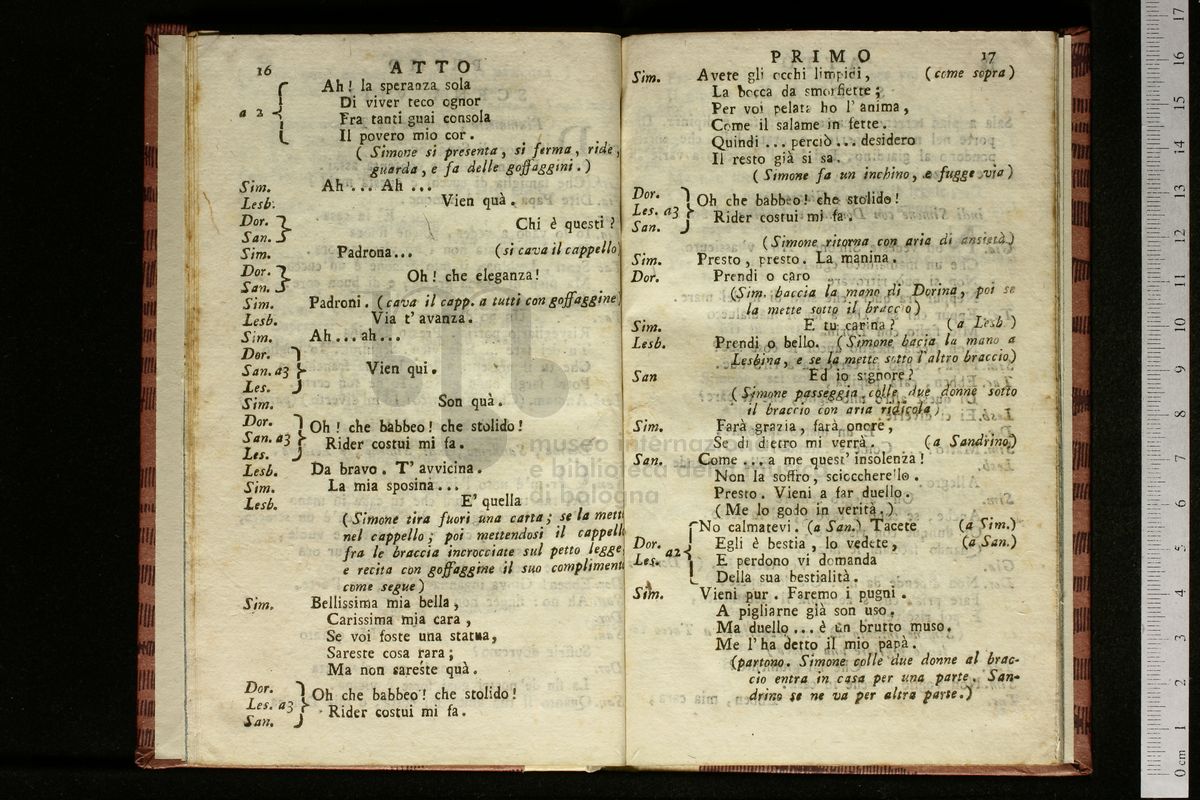 16 ATTO
Ah! la speranza sola
Di viver teco ognor
a 2 Fra tanti guai consola
Il povero mio cor.
( Simone si presenta, si ferma, ride,
guarda, e fa delle goffaggini. )
Sim. Ah ... Ah ...
Lesb. Vien quà.
Dor.
San. Chi è questi?
Sim. Padrona... (si cava il cappello
Dor.
San. Oh! che eleganza!
Sim. Padroni. (cava il capp. a tutti con goffaggine)
Lesb. Via t'avanza.
Sim. Ah... ah...
Dor.
San. a3 Vien qui.
Les.
Sim. Son quà.
Dor. Oh! che babbeo! che stolido!
San. a3 Rider costui mi fa.
Les.
Lesb. Da bravo. T'avvicina.
Sim. La mia sposina...
Lesb. E' quella
(Simone tira fuori una carta; se la mett
nel cappello; poi mettendosi il cappell
fra le braccia incrocciate sul petto legge
e recita con goffaggine il suo compliment
come segue)
Sim. Bellissima mia bella,
Carissima mia cara,
Se voi foste una statua,
Sareste cosa rara;
Ma non sareste quà.
Dor. Oh che babbeo! che stolido!
Les. a3 Rider costui mi fa.
San.
PRIMO 17
Sim. Avete gli occhi limpidi, (come sopra)
La bocca da smorfiette;
Per voi pelata ho l'anima,
Come il salame in fette.
Quindi ... perciò ... desidero
Il resto già si sa.
(Simone fa un inchino, e fugge via)
Dor. Oh che babbeo! che stolido!
Les. a3 Rider costui mi fa.
San.
(Simone ritorna con aria di ansietà.)
Sim. Presto, presto. La manina.
Dor. Prendi o caro
(Sim. baccia la mano di Dorina, poi se
la mette sotto il braccio)
Sim. E tu carina? (a Lesb.)
Lesb. Prendi o bello. (Simone bacia la mano a
Lesbina, e se la mette sotto l'altro braccio)
San Ed io signore?
(Simone passeggia colle due donne sotto
il braccio con aria ridicola)
Sim. Farà grazia, farà onore,
Se di dietro mi verrà. (a Sandrino)
San. Come ... a me quest' insolenza!
Non la soffro, scioccherello.
Presto. Vieni a far duello.
(Me lo godo in verità.)
No calmatevi. (a San.) Tacete (a Sim.)
Dor. Egli è bestia, lo vedete, (a San.)
Les. a2 E perdono vi domanda
Della sua bestialità.
Sim. Vieni pur. Faremo i pugni.
A pigliarne già son uso.
Ma duello ... è un brutto muso.
Me l'ha detto il mio papà.
(partono. Simone colle due donne al brac-
cio entra in casa per una parte. San-
drino se ne va per altra parte.)
museo internazionale
e biblioteca della musica
di bologna
0 cm 1 2 3 4 5 6 7 8 9 10 11 12 13 14 15 16 17